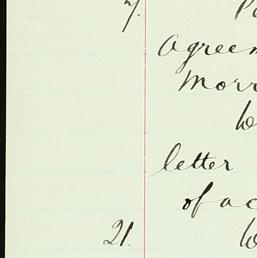 7.
agreem
Morr
letter
of ac
21.